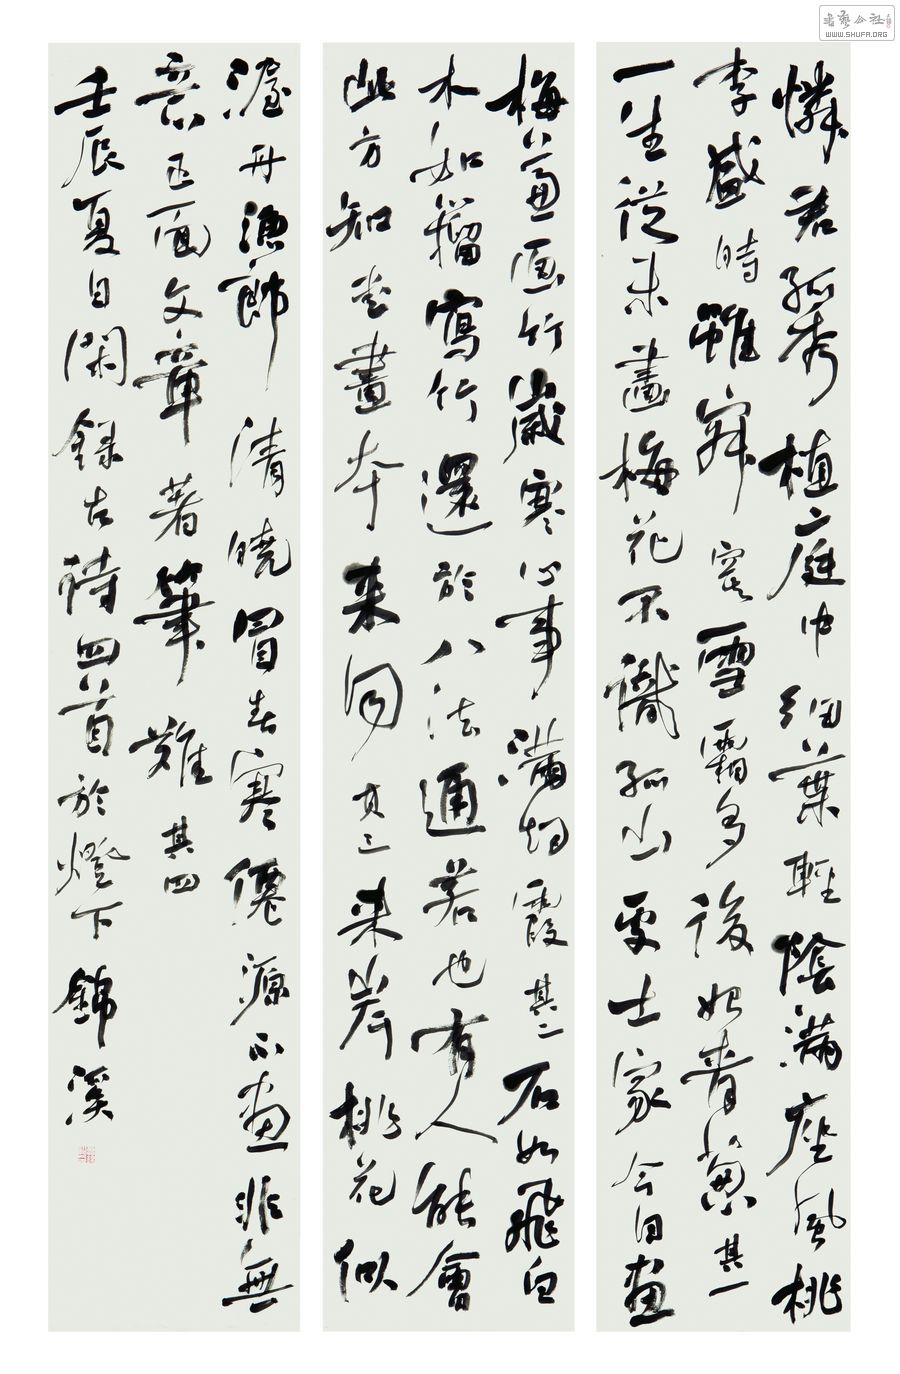 憐君孤秀植庭中細葉輕陰滿座風桃
李盛時雖寂寞雪霜多後始青葱其一
一生從未畫梅花不識孤山處士家今日畫
梅兼畫竹歲寒心事滿煙霞其二石如飛白
木如籀寫竹還於八法通若也有人能會
此方知書畫本來同其三来岸桃花似
渥丹漁郎清曉冒春寒僊源不畫非無
意正面文章著筆難其四
壬辰夏日閑錄古詩四首於燈下錦溪
WWW.SHUFA.ORG